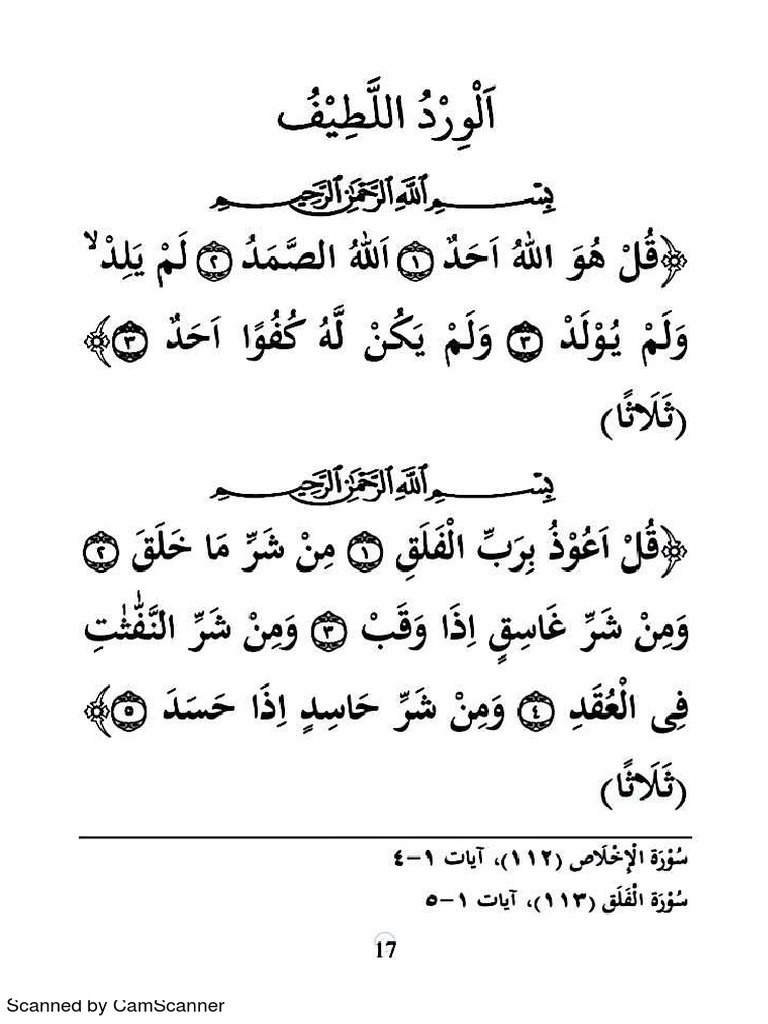 اَلْوِرْدُ اللَّطِيْفُ
بِسْمِ اللَّهِ الرَّحْمَٰنِ الرَّحِيمِ
﴿قُلْ هُوَ اللهُ اَحَدٌ ۝١ اَللهُ الصَّمَدُ ۝٢ لَمْ يَلِدْ ۙ
وَلَمْ يُوْلَدْ ۝٣ وَلَمْ يَكُنْ لَّهُ كُفُوًا اَحَدٌ ۝٣﴾
(ثَلَاثًا)
بِسْمِ اللَّهِ الرَّحْمَٰنِ الرَّحِيمِ
﴿قُلْ اَعُوْذُ بِرَبِّ الْفَلَقِ ۝١ مِنْ شَرِّ مَا خَلَقَ ۝٢
وَمِنْ شَرِّ غَاسِقٍ اِذَا وَقَبْ ۝٣ وَمِنْ شَرِّ النَّفّٰثٰتِ
فِى الْعُقَدِ ۝٤ وَمِنْ شَرِّ حَاسِدٍ اِذَا حَسَدَ ۝٥﴾
(ثَلَاثًا)
سُوْرَة الْإِخْلَاص (١١٢)، آيات ١-٤
سُوْرَة الْفَلَق (١١٣)، آيات ١-٥
17
Scanned by CamScanner